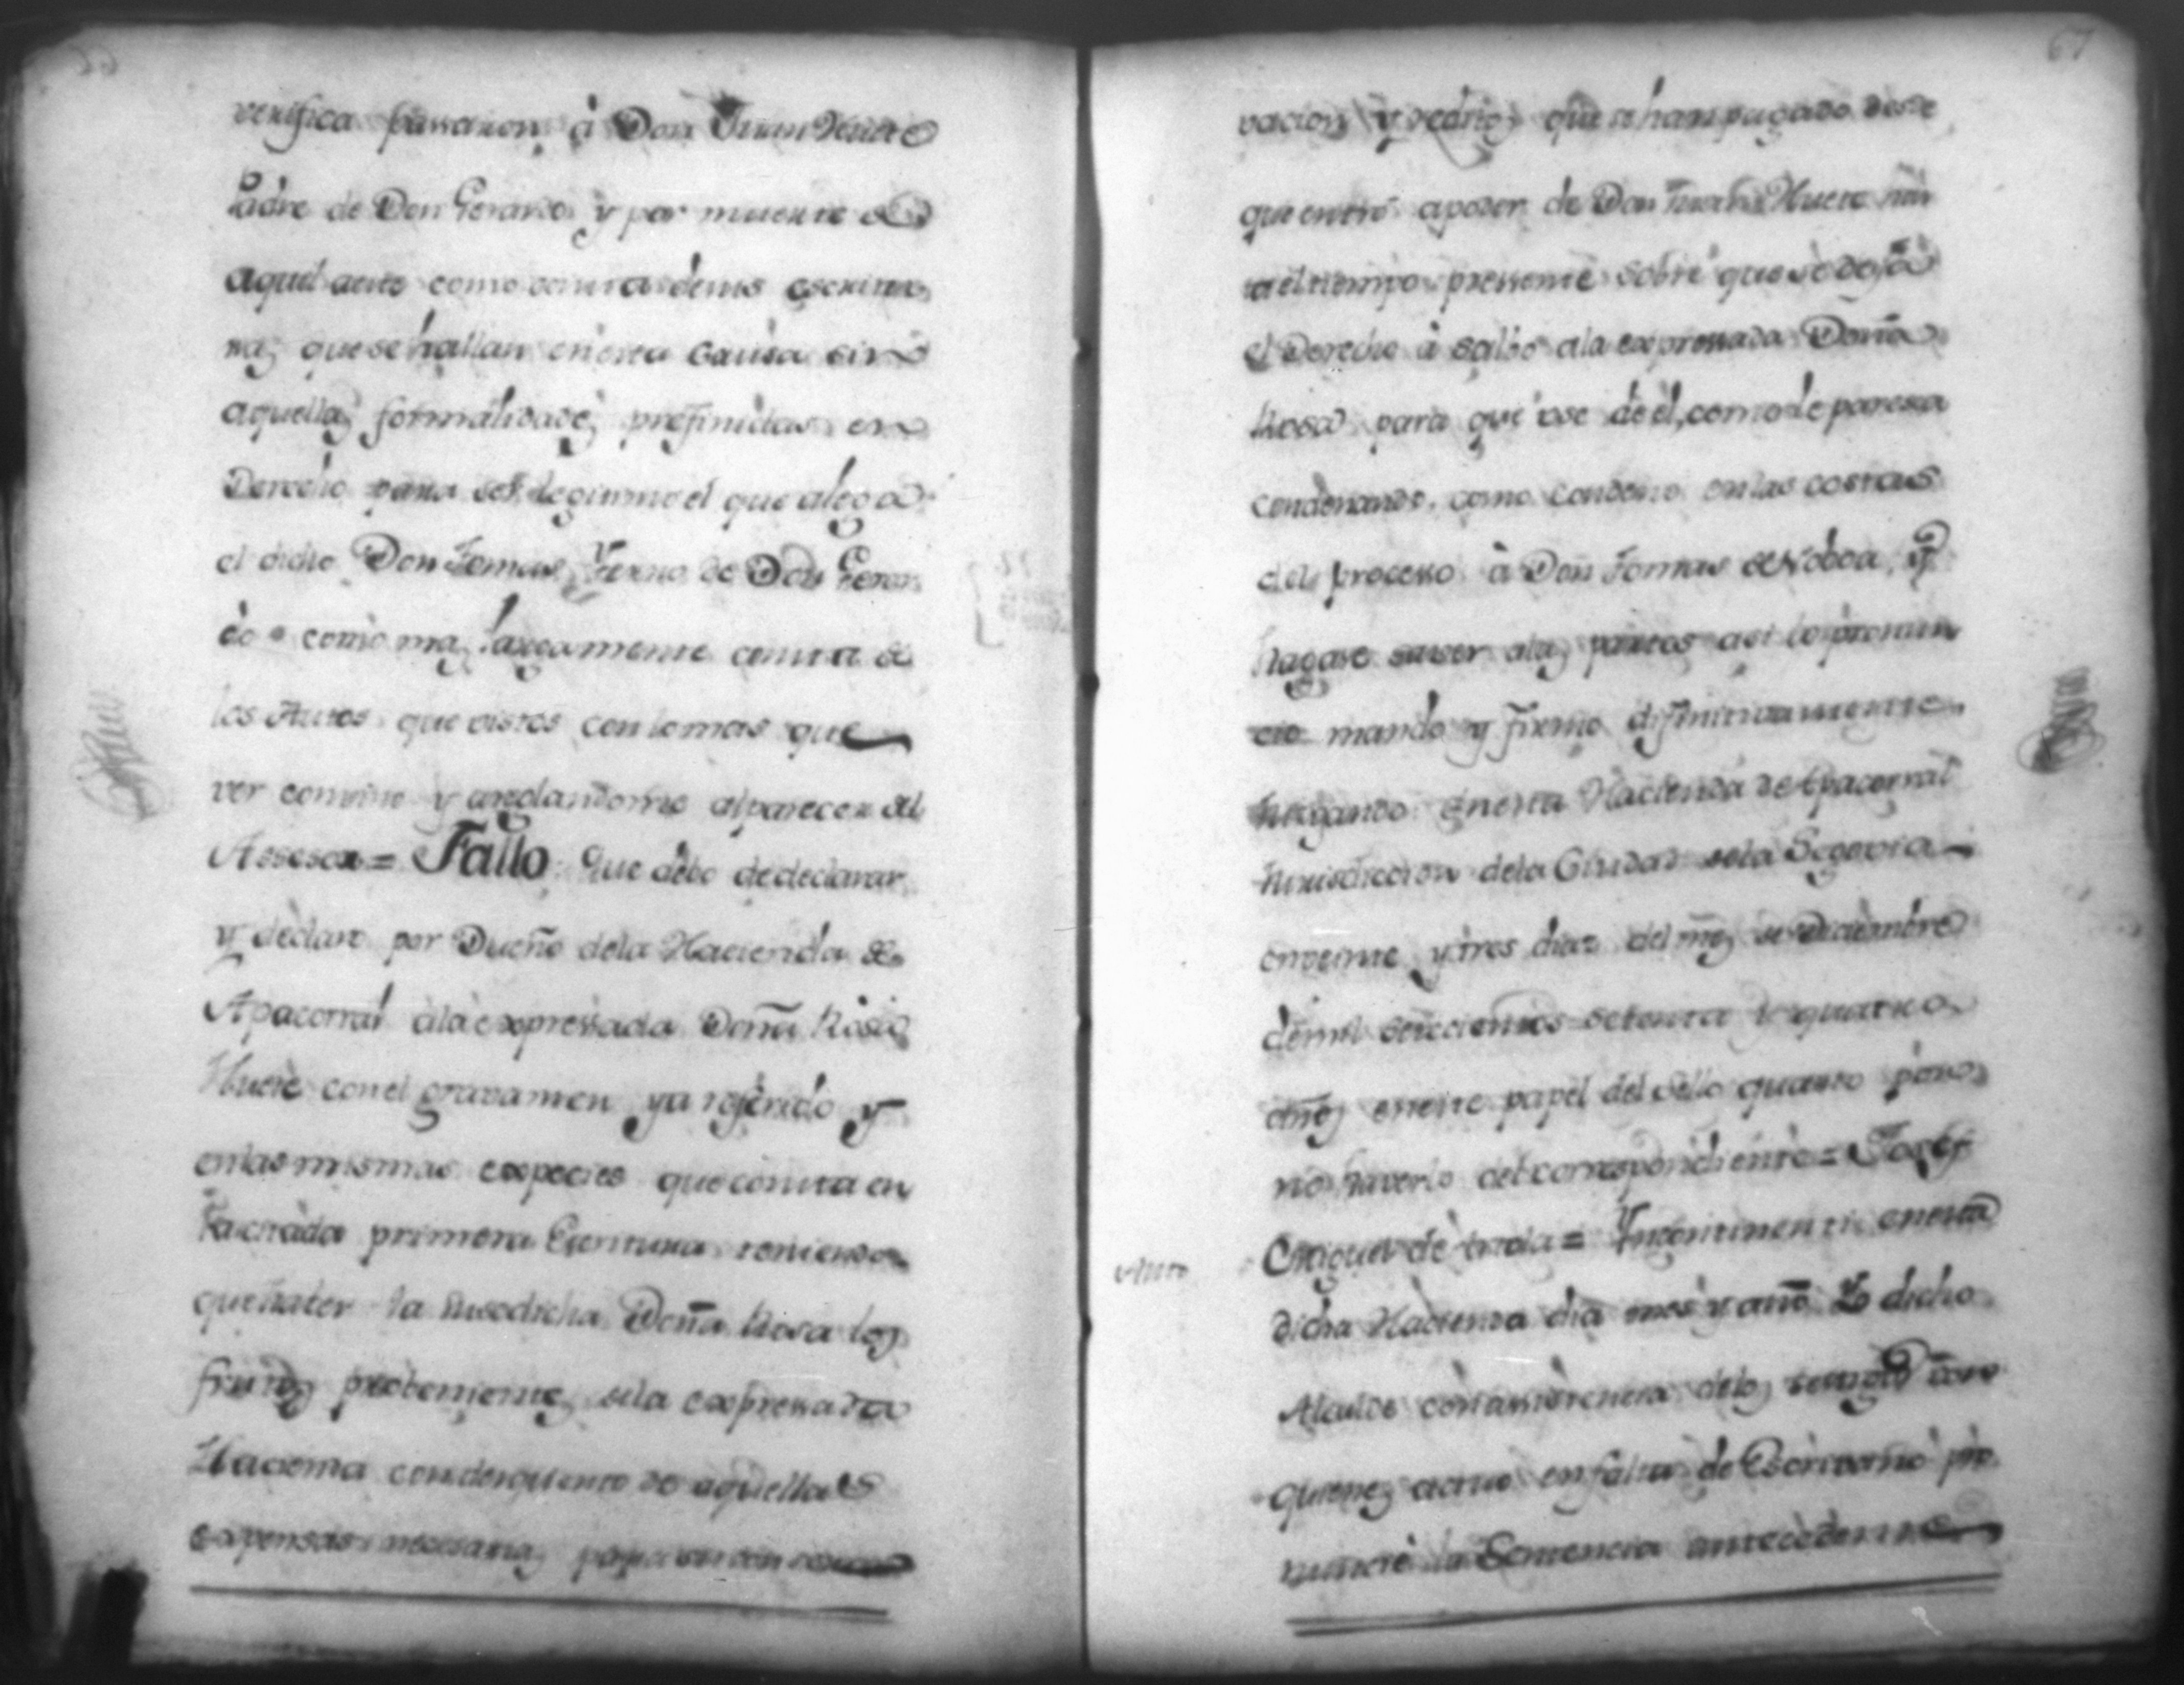 verifica passaron, à Don Juan Huete
Padre de Don Gerardo, y por muerte de
aquel assi como consta demas escritu
ras, que se hallan en esta causa sin
aquellas formalidades, prefinidas en
Derecho para ser legitimo el que alega
el dicho Don Tomas, Yerno de Don Gerar
do = como mas largamente consta de
los Autos que vistos con lo mas que
ver convino y areglandome al parecer del
Assesor = Fallo. Que debo de declarar,
y declaro por Dueño dela Hacienda de
Apacorral àla expressada Doña Rosa
Huete con el gravamen ya referido y
en las mismas expecies que consta en
la citada primera Escritura teniendo
que hater la susodicha Doña Rosa los
frutos probenientes, dela expressada
Hacienda con desquento de aquellas
expensas necesarias, para su conser
67
vacion, y reditos que se han pagado desde
que entró apoder de Don Juan Huete has
ta el tiempo pressente sobre que se deja
el Derecho à salbo ala expressada Doña
Rosa para que use de él, como le paresca
condenando, como condeno en las costas
del processo à Don Tomas de Noboa, y
hagase saver alas partes asi lo pronun
cio mando y firmo difinitivamente
jusgando en esta Hacienda de Apacorral
Jurisdiccion dela Ciudad dela Segovia
en veinte y tres dias del mes de Diciembre
de mil setecientos setenta y quatro
años, en este papel del sello quarto por
no haverlo del correspondiente = Josef
Miguel de = Yncontinenti en esta
Auto
dicha Hacienda dia mes y año Yo dicho
Alcalde con assistencia delos testigos con
quienes actuo en falta de Escrivano pro
nuncié la Sentencia antecedente